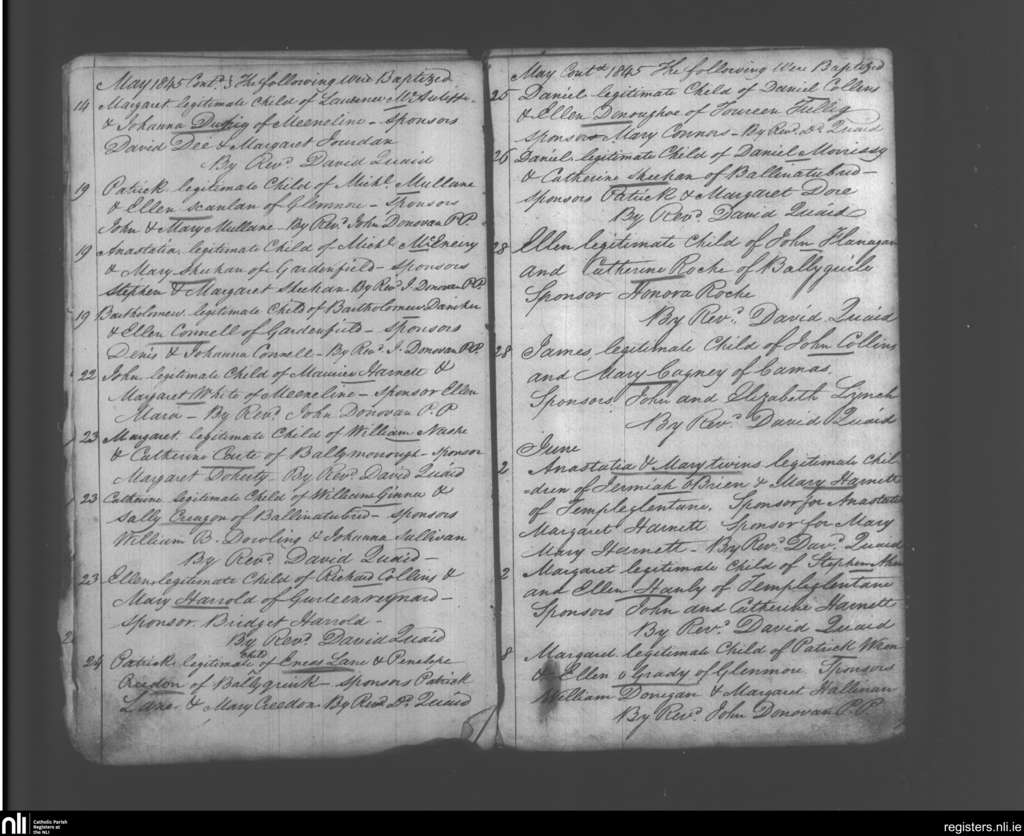 May 1845 Contd. The following were Baptized
14 Margaret legitimate Child of Laurence McAuliffe
& Johanna Duffig of Meeneline - Sponsors
David Dee & Margaret Jourdan
By Revd. David Quaid
19 Patrick legitimate Child of Michl. Mullane
& Ellen Scanlan of Glenmore - Sponsors
John & Mary Mullane By Revd. John Donovan P.P.
19 Anastatia legitimate Child of Michl. McEneiry
& Mary Sheehan of Gardenfield - Sponsors
Stephen & Margaret Sheehan By Revd. J. Donovan P.P.
19 Bartholomew legitimate Child of Bartholomew
& Ellen Connell of Gardenfield - Sponsors
Denis & Johanna Connell - By Revd. J. Donovan P.P.
22 John legitimate Child of Maurice Harnett &
Margaret White of Meeneline - Sponsor Ellen
Mara - By Revd. John Donovan P P
23 Margaret legitimate Child of William Nashe
& Catherine Coute of Ballymonough - Sponsor
Margaret Doherty - By Revd. David Quaid
23 Catherine legitimate Child of William Ginna &
Sally Creagon of Ballinatubrid - Sponsors
William B. Dowling & Johanna Sullivan
By Revd. David Quaid -
23 Ellen legitimate Child of Richard Collins &
Mary Harrold of Gurteenreynard -
Sponsor Bridget Harrold -
By Revd. David Quaid
24 Patrick legitimate Child of Eneas Lane & Penelope
Creedon of Ballygriuk - Sponsors Patrick
Lane & Mary Creedon By Revd. D. Quaid
May Contd. 1845 The following Were Baptized
25 Daniel legitimate Child of Daniel Collins
& Ellen Donoughoe of Toureen
Sponsor Mary Connors - By Revd. Dd. Quaid
26 Daniel legitimate Child of Daniel Morrissy
& Catherine Sheehan of Ballinatubrid -
Sponsors Patrick & Margaret Dore
By Revd. David Quaid
28 Ellen legitimate Child of John Flanagan
and Catherine Roche of Ballyguile
Sponsor Honora Roche
By Revd. David Quaid
28 James legitimate Child of John Collins
and Mary Cagney of Camas.
Sponsors John and Elizabeth Lynch
By Revd. David Quaid
June
2 Anastatia & Mary twins legitimate Chil
-dren of Jermiah OBrien & Mary Harnett
of Templeglentane. Sponsor for Anastatia
Margaret Harnett. Sponsor for Mary
Mary Harnett - By Revd. Davd. Quaid
2 Margaret legitimate Child of Stephen
and Ellen Hanly of Templeglentane
Sponsors John and Catherine Harnett
By Revd. David Quaid
8 Margaret legitimate Child of Patrick Wren
& Ellen oGrady of Glenmore Sponsors
William Donegan & Margaret Hallinan
By Revd. John Donovan P.P.
nli
Catholic Parish
Registers at
the NLI
registers.nli.ie